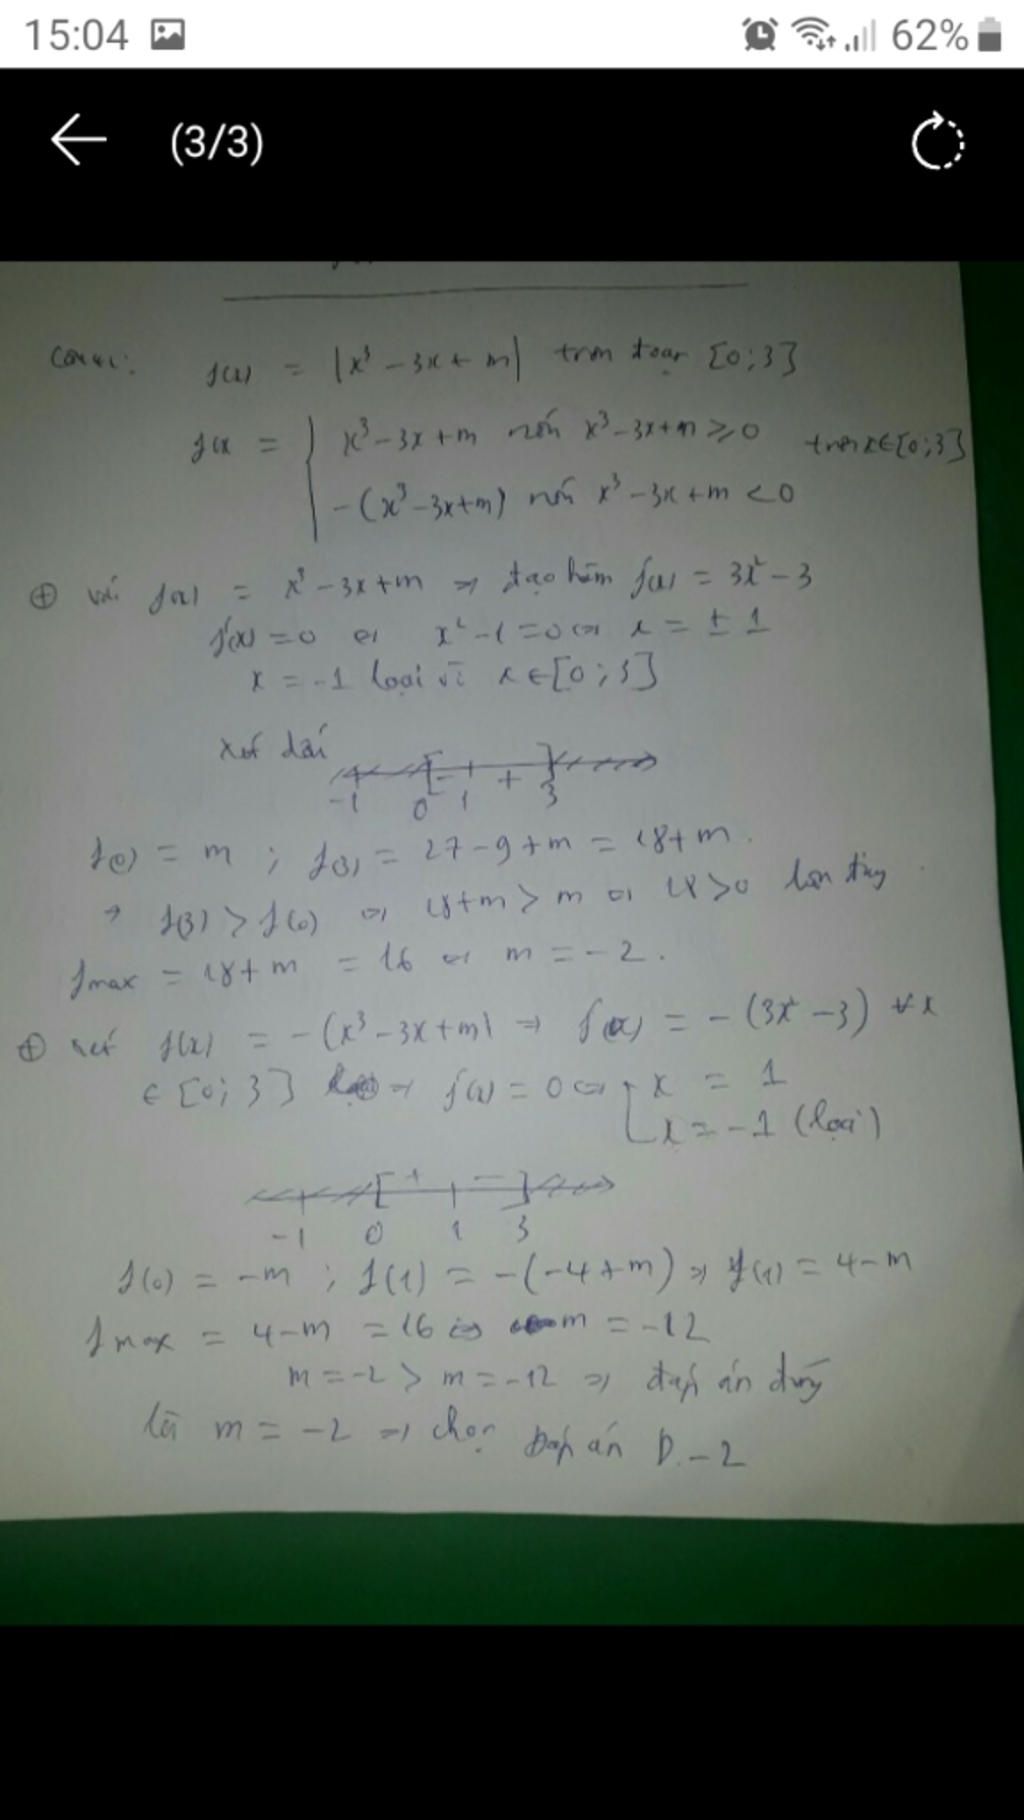 15:04 62%
(3/3)
f(x) = |x³ - 3x + m| trên đoạn [0;3]
f(x = { x³ - 3x + m nếu x³ - 3x + m ≥ 0 trên x ∈ [0;3]
-(x³ - 3x + m) nếu x³ - 3x + m < 0
⊕ với f(x) = x³ - 3x + m => đạo hàm f(x) = 3x² - 3
f'(x) = 0 <=> x² - 1 = 0 <=> x = ± 1
x = -1 loại vì x ∈ [0;3]
xét dấu
- +
-1 0 1 3
f(0) = m ; f(3) = 27 - 9 + m = 18 + m.
=> f(3) > f(0) <=> 18 + m > m <=> 18 > 0 luôn đúng
fmax = 18 + m = 16 <=> m = -2.
⊕ xét f(x) = -(x³ - 3x + m) => f(x) = -(3x² - 3) ∀x
∈ [0;3] => f(x) = 0 <=> [ x = 1
x = -1 (loại)
+ -
-1 0 1 3
f(0) = -m ; f(1) = -(-4 + m) => f(1) = 4 - m
fmax = 4 - m = 16 <=> m = -12
m = -2 > m = -12 => đáp án đúng
là m = -2 => chọn Đáp án D. -2